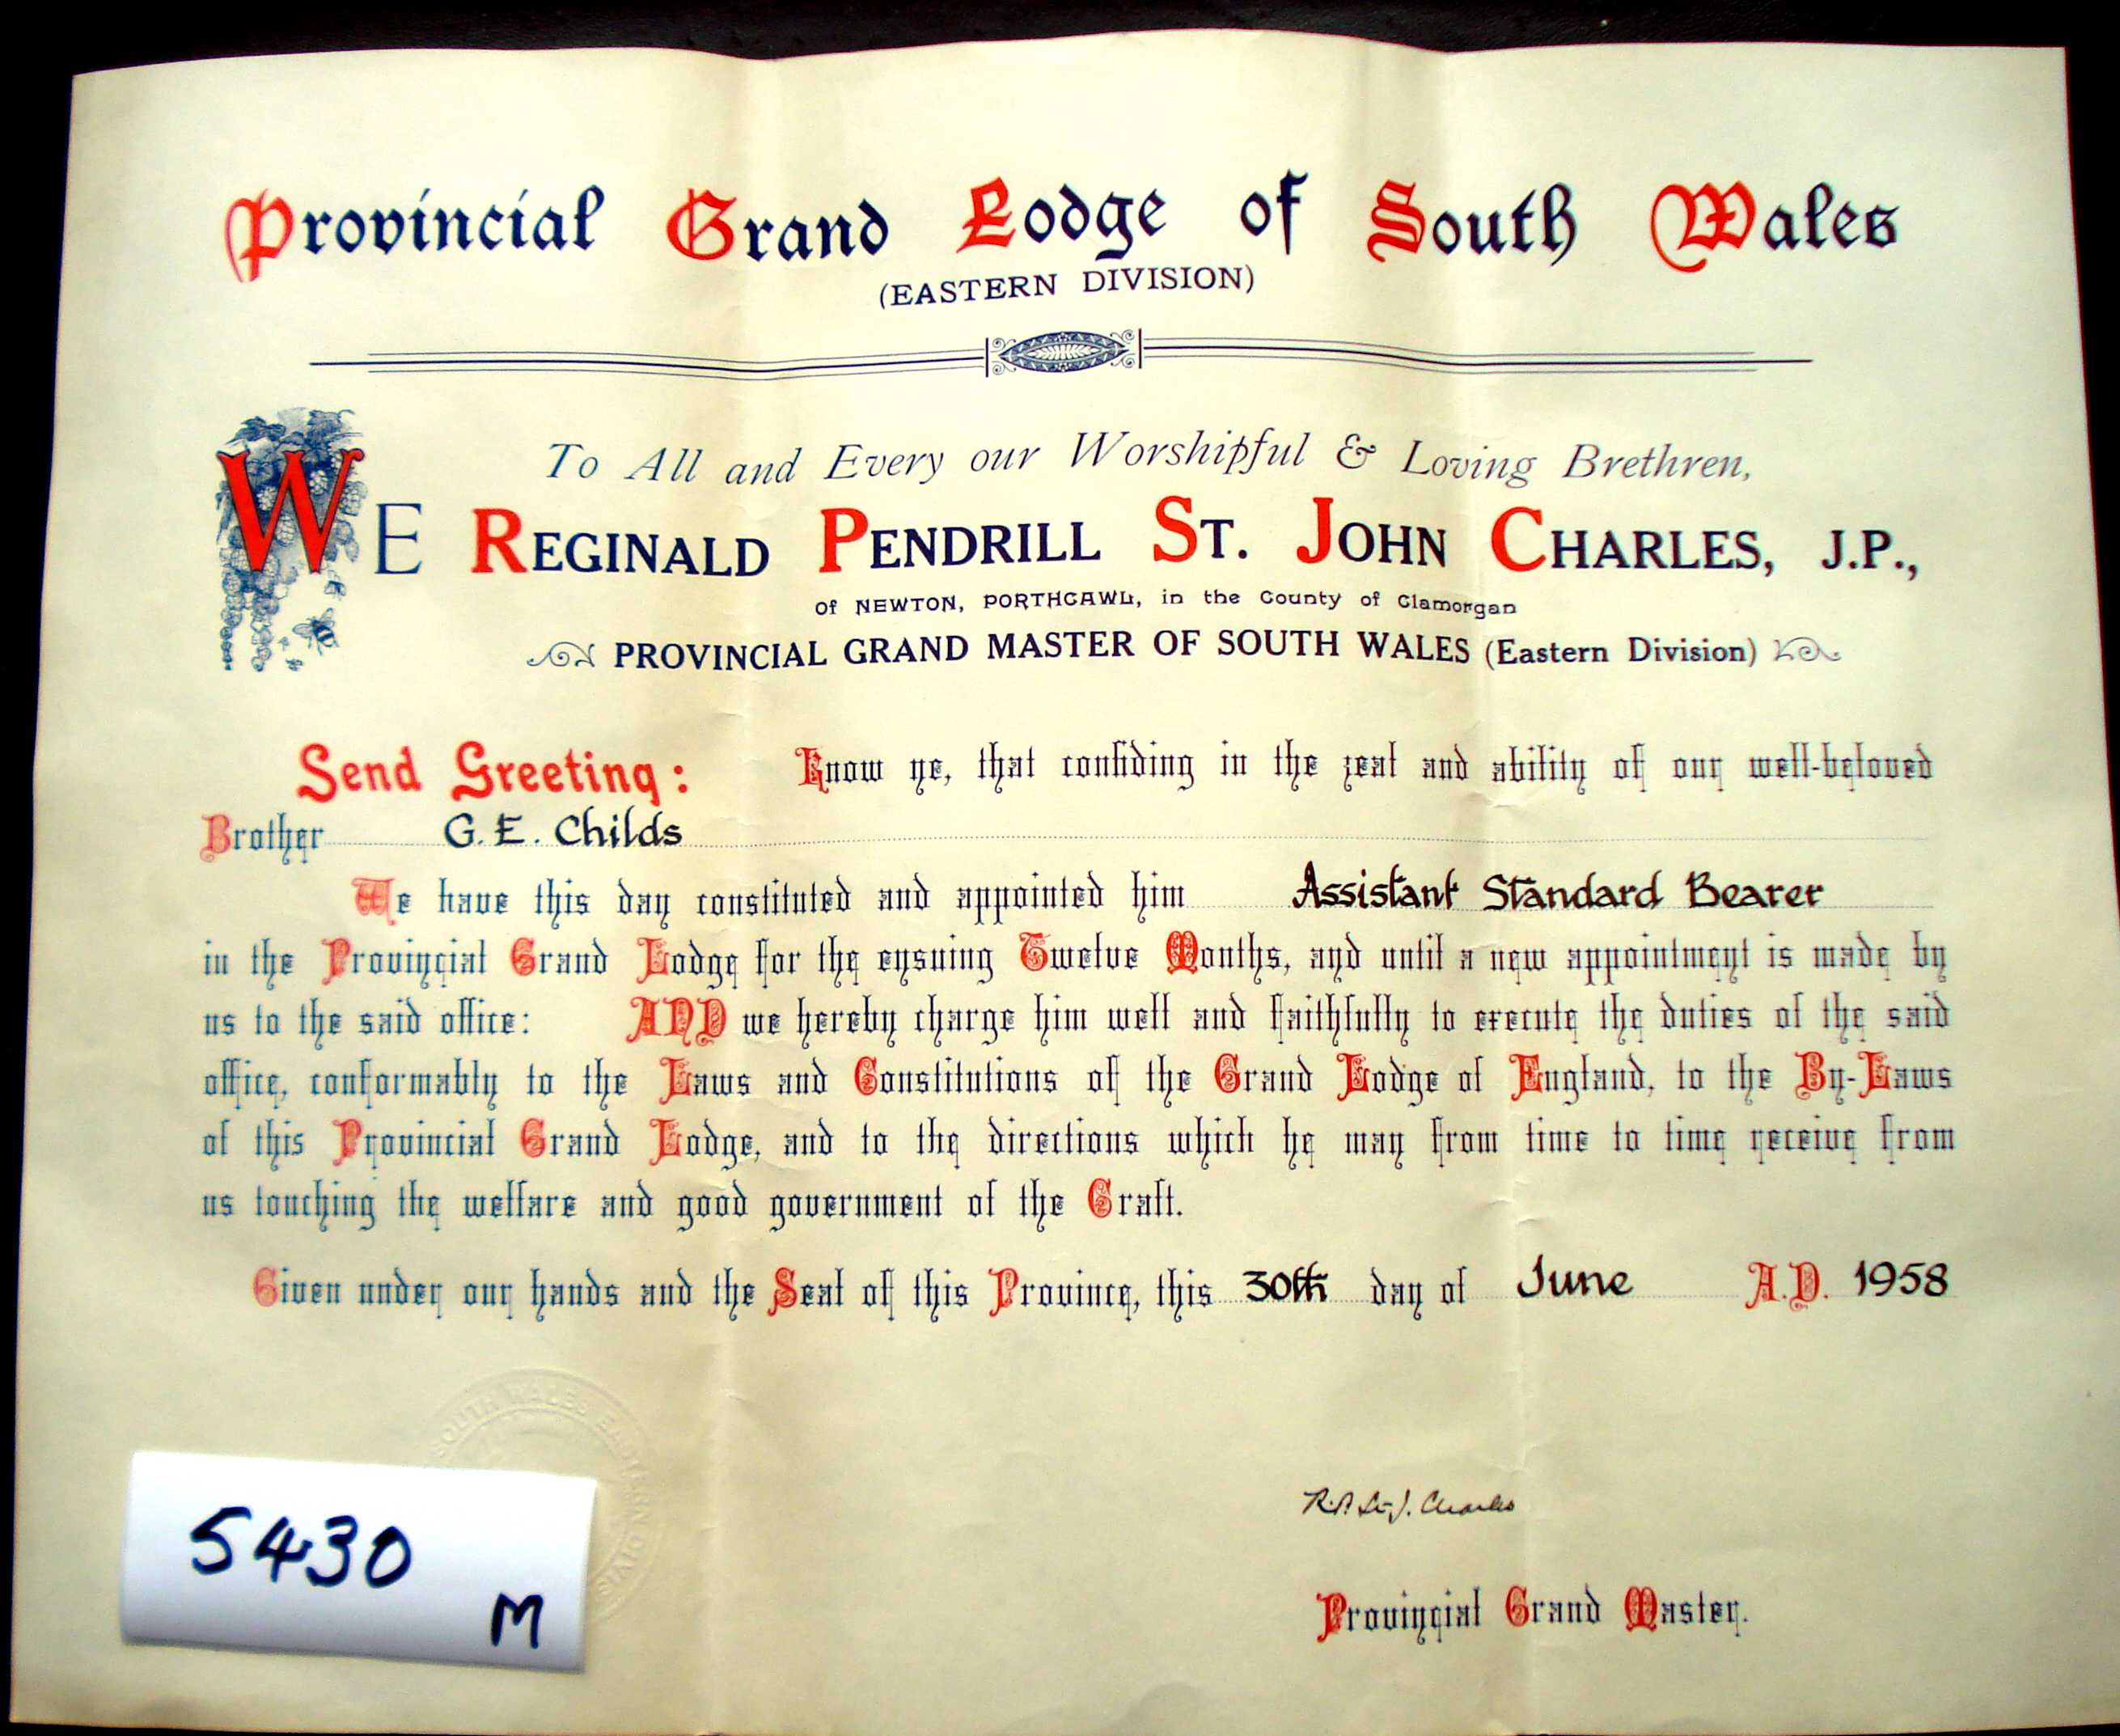 Provincial Grand Lodge of South Wales
(EASTERN DIVISION)
To All and Every our Worshipful & Loving Brethren,
WE REGINALD PENDRILL ST. JOHN CHARLES, J.P.,
Of NEWTON, PORTHCAWL, in the County of Glamorgan
PROVINCIAL GRAND MASTER OF SOUTH WALES (Eastern Division)
Send Greeting: Know ye, that confiding in the zeal and ability of our well-beloved
Brother G. E. Childs
We have this day constituted and appointed him Assistant Standard Bearer
in the Provincial Grand Lodge for the ensuing Twelve Months, and until a new appointment is made by
us to the said office: AND we hereby charge him well and faithfully to execute the duties of the said
office, conformably to the Laws and Constitutions of the Grand Lodge of England, to the By-Laws
of this Provincial Grand Lodge, and to the directions which he may from time to time receive from
us touching the welfare and good government of the Craft.
Given under our hands and the Seal of this Province, this 30th day of June A.D. 1958
SOUTH WALES EASTERN DIVIS
R.P. St. J. Charles
Provincial Grand Master.
5430
M